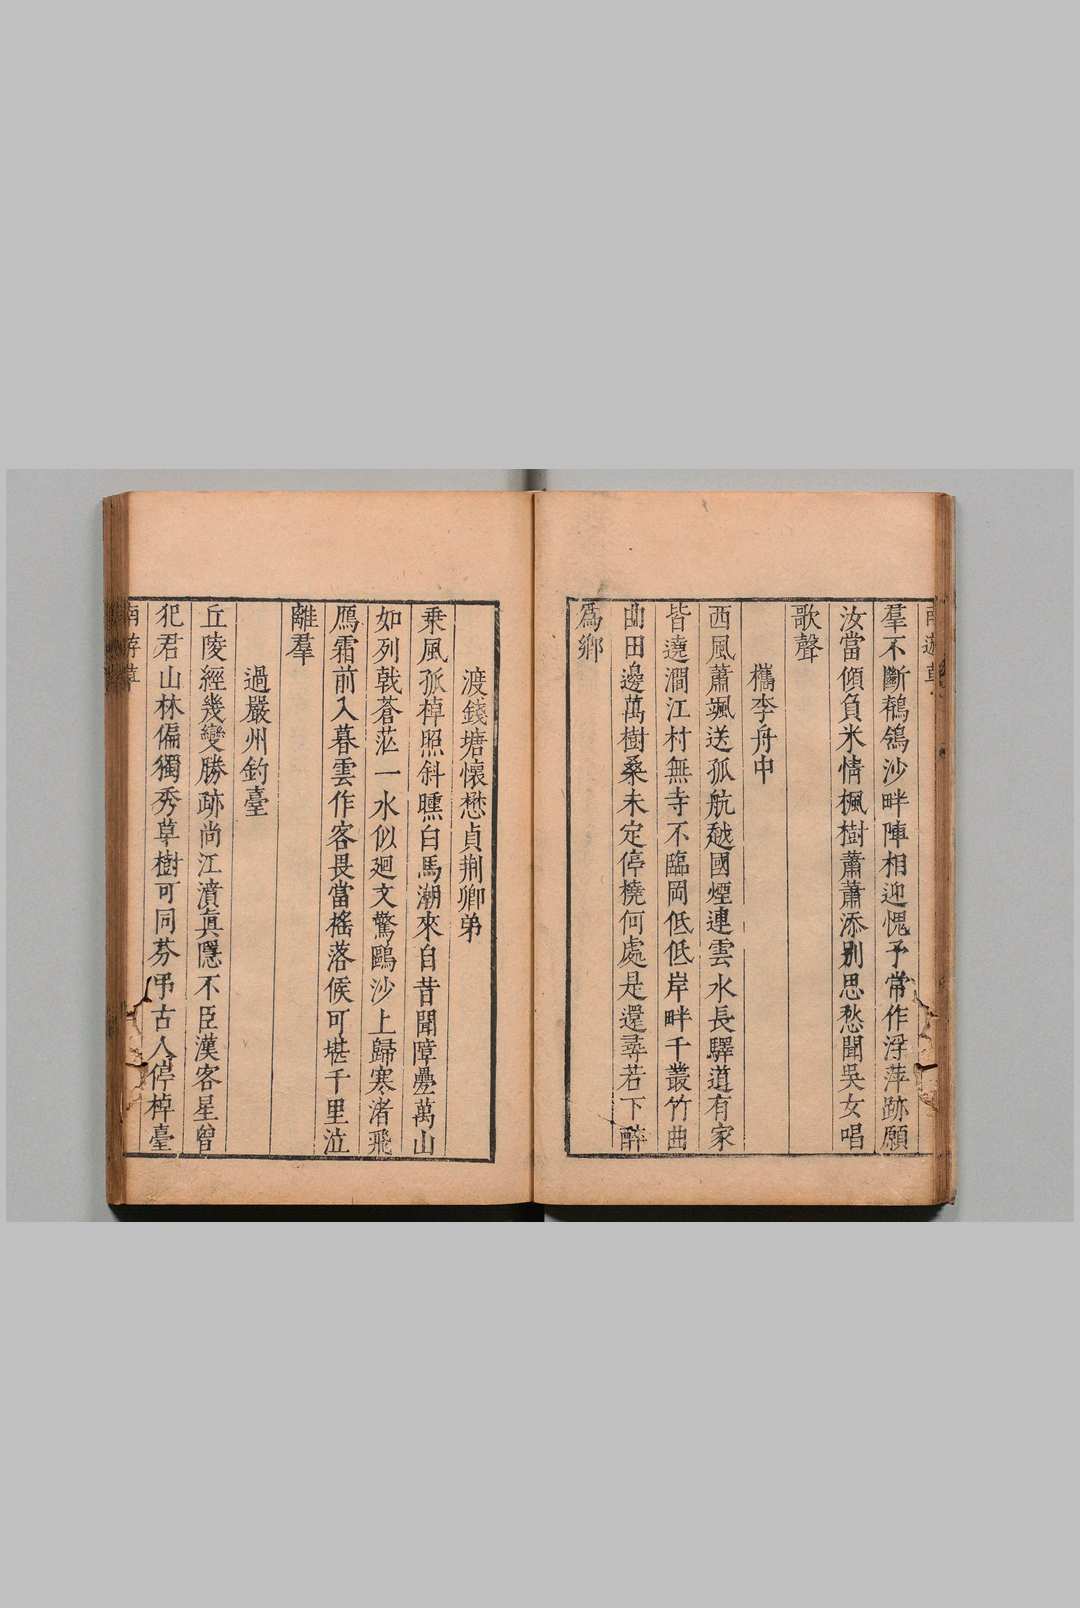 南遊草
羣不斷鶺鴒沙畔陣相迎愧予常作浮萍跡願
汝當傾負米情楓樹蕭蕭添别思愁聞吳女唱
歌聲
檇李舟中
西風蕭颯送孤航越國煙連雲水長驛道有家
皆遶澗江村無寺不臨岡低低岸畔千叢竹曲
曲田邊萬樹桑未定停橈何處是還尋若下醉
爲鄉
渡錢塘懷懋貞荆卿弟
乗風孤棹照斜曛白馬潮來自昔聞障疊萬山
如列戟蒼茫一水似廻文驚鷗沙上歸寒渚飛
鴈霜前入暮雲作客畏當搖落候可堪千里泣
離羣
過嚴州釣臺
丘陵經幾變勝跡尚江濆真隱不臣漢客星曾
犯君山林偏獨秀草樹可同芬弔古人停棹臺
南遊草